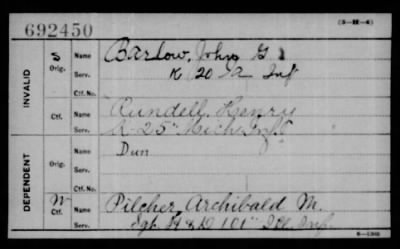 692450
(3—22—4)
S Name Barlow, John G
Orig. Serv. K 20 Ia Inf
Ctf. No.
INVALID
Name Rundell, Henry
Ctf. Serv. K-25" Mich. Inf
Name Dun
Orig. Serv.
Ctf. No.
DEPENDENT
W Name Pilcher, Archibald M.
Ctf. Serv. Sgt. H & D 101" Ill. Inf.